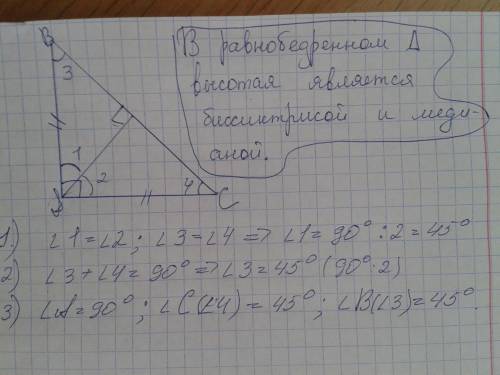 B
3
1
2
4
A
C
В равнобедренном Δ
высотая является
биссиктрисой и меди-
аной.
1.) ∠1=∠2; ∠3=∠4 => ∠1= 90° : 2 = 45°
2) ∠3+∠4=90° => ∠3=45° (90°:2)
3) ∠A=90°; ∠C(∠4)=45°; ∠B(∠3)=45°.